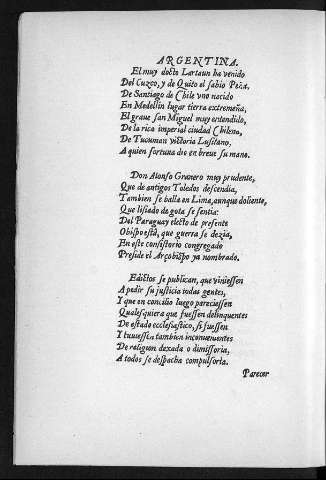 ARGENTINA.
El muy docto Lartaun ha venido
Del Cuzco, y de Quito el sabio Peña.
De Santiago de Chile vno nacido
En Medellin lugar tierra estremeña,
El graue san Miguel muy entendido,
De la rica imperial ciudad Chileno,
De Tucuman victoria Lusitano.
A quien fortuna dio en breue su mano.
Don Alonso Granero muy prudente,
Que de antigos Toledos descendia,
Tambien se halla en Lima, aunque doliente,
Que lisiado de gota se sentia:
Del Paraguay electo de presente
Obispo està, que guerra se dezia,
En este consistorio congregado
Preside el Arçobispo ya nombrado.
Edictos se publican, que viniessen
A pedir su justicia todas gentes,
Y que en concilio luego pareciessen
Qualesquiera que fuessen delinquentes
De estado ecclesiastico, si fuessen
Y tuuiessen tambien inconuenientes
De religion dexada o dimissoria,
A todos se despacha compulsoria.
Parecer